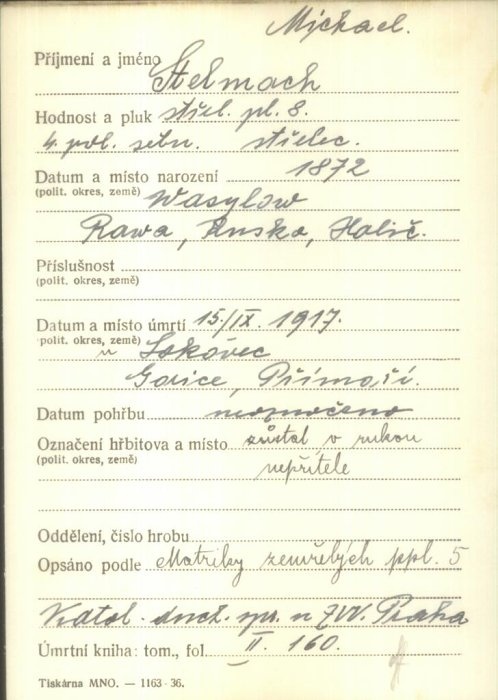 Michael.
Příjmení a jméno Stelmach
Hodnost a pluk střel. pl. 8.
4. pol. setn. střelec.
Datum a místo narození 1872
(polit. okres, země) Wasylow
Rawa, Ruska, Halič.
Příslušnost
(polit. okres, země)
Datum a místo úmrtí 15/IX. 1917.
(polit. okres, země) u Lokovec
Gorice, Přímoří.
Datum pohřbu neoznačeno
Označení hřbitova a místo zůstal v rukou
(polit. okres, země) nepřítele
Oddělení, číslo hrobu
Opsáno podle Matriky zemřelých ppl. 5
Katol. duch. spr. u ZVV. Praha
Úmrtní kniha: tom., fol. II. 160.
Tiskárna MNO. — 1163-36.